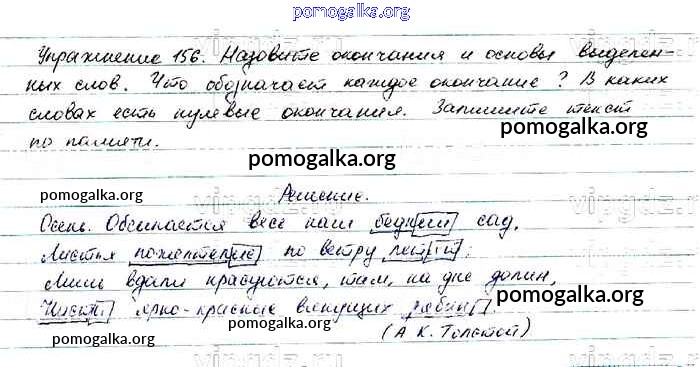 pomogalka.org
Упражнение 156. Назовите окончания и основы выделен-
ных слов. Что обозначает каждое окончание? В каких
словах есть нулевые окончания. Запишите текст
pomogalka.org
по памяти.
pomogalka.org
pomogalka.org
Решение.
Осень. Обсыпается весь наш бедный сад,
Листья пожелтелые по ветру летят;
Лишь вдали красуются, там, на дне долин,
pomogalka.org
Кисти ярко-красные вянущих рябин.
pomogalka.org
(А К. Толстой)
pomogalka.org